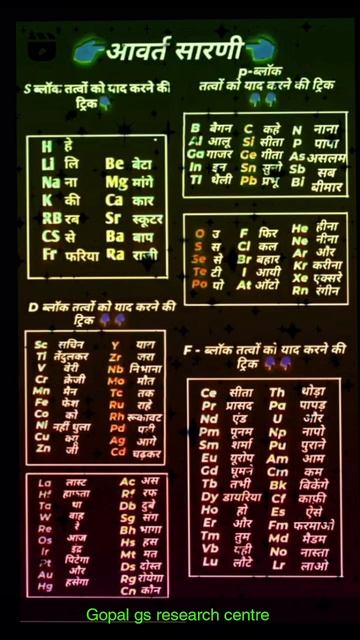 आवर्त सारणी
S ब्लॉक तत्वों को याद करने की
ट्रिक
H हे
Li लि Be बेटा
Na ना Mg मांगे
K की Ca कार
RB रब Sr स्कूटर
CS से Ba बाप
Fr फरिया Ra राजी
p-ब्लॉक
तत्वों को याद करने की ट्रिक
B बैगन C कहे N नाना
Al आलू Si सीता P पापा
Ga गाजर Ge गीता As असलम
In इन Sn सुने Sb सब
Tl थैली Pb प्रभू Bi बीमार
O उ F फिर He हीना
S स Cl कल Ne नीना
Se से Br बहार Ar और
Te टी I आयी Kr करीना
Po पो At ऑटो Xe एक्सरे
Rn रंगीन
D ब्लॉक तत्वों को याद करने की
ट्रिक
Sc सचिन Y
Ti तेंदुलकर Zr जरा
V वेरी Nb निभाना
Cr क्रेजी Mo मौत
Mn मैन Tc तक
Fe फेंस Ru राहे
Co को Rh रूकावट
Ni नहीं धुला Pd
Cu क्यू Ag आगे
Zn जी Cd चढ़कर
La लास्ट Ac अस
Hf हाफ्ता Rf रफ
Ta था Db डुबे
W वाह Sg संग
Re रे Bh भागा
Os आज Hs हस
Ir इंद्र Mt मत
Pt पिटेगा Ds दोस्त
Au और Rg रोयेगा
Hg हसेगा Cn कौन
F - ब्लॉक तत्वों को याद करने की
ट्रिक
Ce सीता Th थोड़ा
Pr प्रासद Pa पापड़
Nd एंड U और
Pm पूनम Np नापो
Sm शर्मा Pu पुराने
Eu यूरोप Am आम
Gd घूमने Cm कम
Tb तभी Bk बिकेंगे
Dy डायरिया Cf काफी
Ho हो Es ऐसे
Er और Fm फरमाओ
Tm तुम Md मैडम
Yb यही No नास्ता
Lu लौटे Lr लाओ
Gopal gs research centre